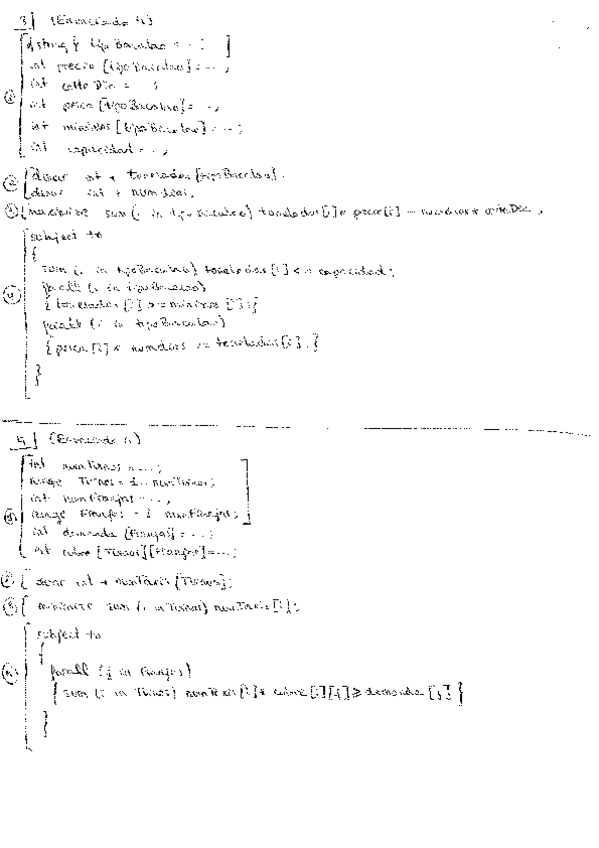 3] (Enunciado 4)
{string} tipo Bacalao = ... ;
int precio [tipoBacalao] = ... ;
int costeDia = ... ;
int pesca [tipoBacalao] = ... ;
int minimos [tipoBacalao] = ... ;
int capacidad = ... ;
② dvar int + toneladas [tipoBacalao].
dvar int + numdias.
③ maximize sum (i in tipoBacalao) toneladas [i] * precio [i] - numdias * costeDia ,
④ subject to
{
sum (i in tipoBacalao) toneladas [i] <= capacidad ;
forall (i in tipoBacalao)
{ toneladas [i] >= minimos [i] ; }
forall (i in tipoBacalao)
{ pesca [i] * numdias >= toneladas [i] . }
}
4] (Enunciado 4)
① int numTurnos = ... ;
range Turnos = 1.. numTurnos ;
int numFranjas = ... ,
range Franjas = 1 numFranjas ;
int demanda [Franjas] = ... ;
int cubre [Turnos][Franjas] = ... ;
② dvar int + numTaxis [Turnos] ;
③ minimize sum (i in Turnos) numTaxis [i] ;
④ subject to
{
forall (j in Franjas)
{ sum (i in Turnos) numTaxis [i] * cubre [i][j] ≥ demanda [j] }
}